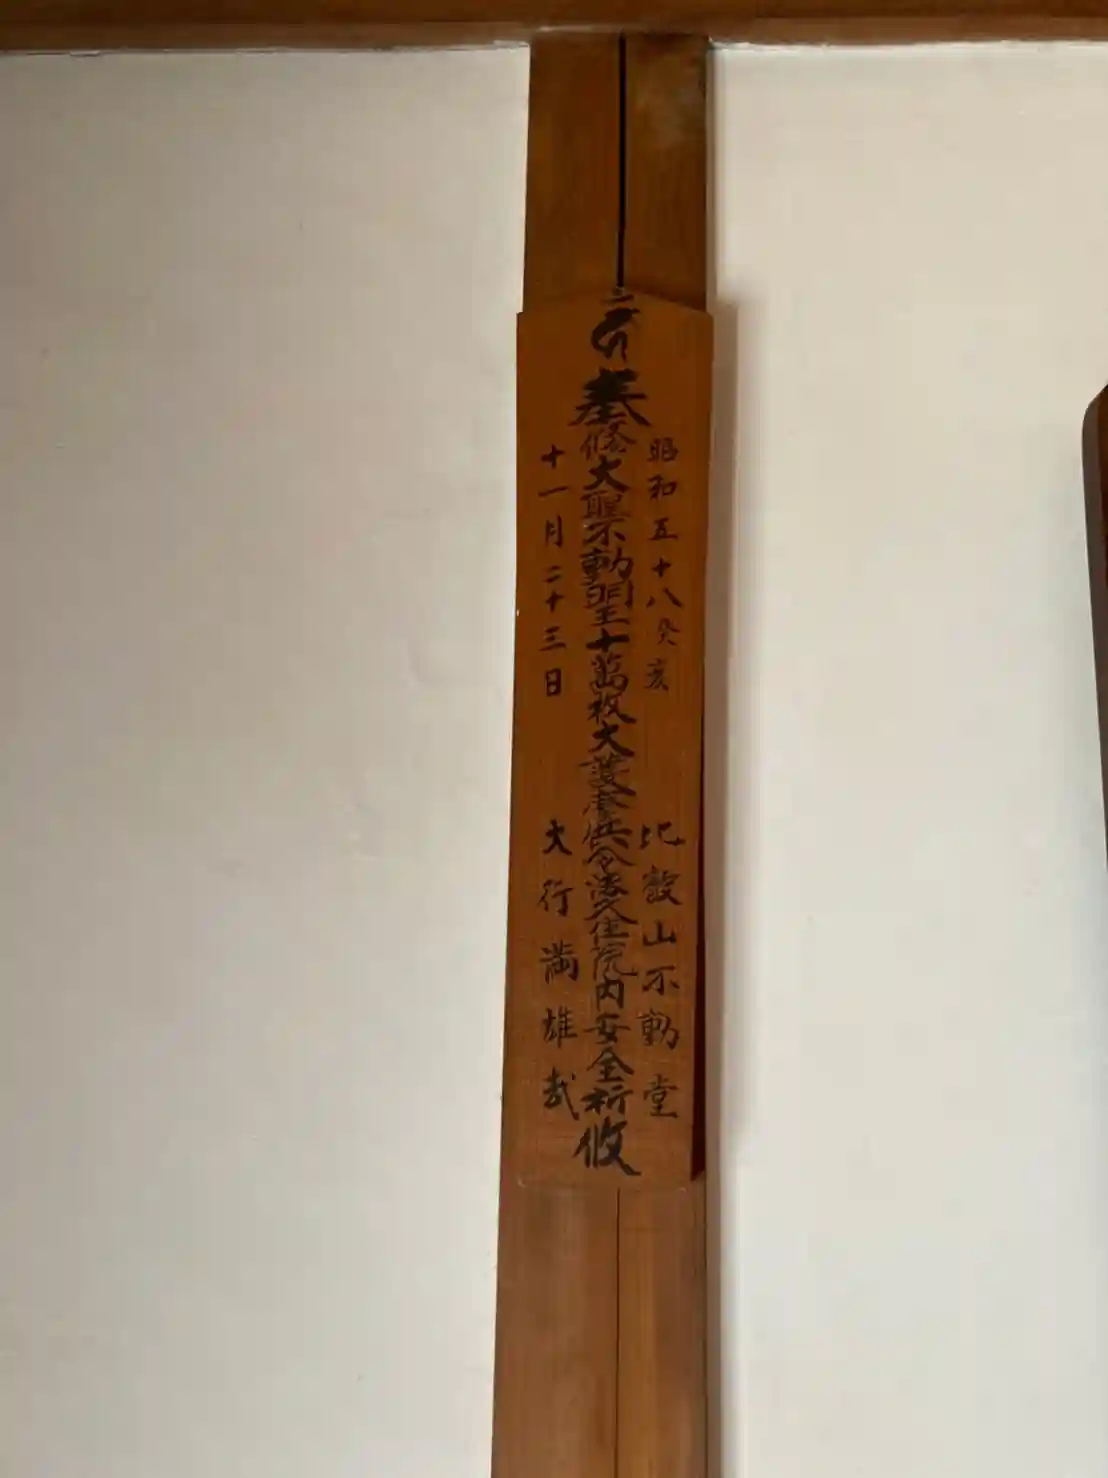 昭和五十八癸亥 比叡山不動堂
奉修大聖不動明王十萬枚大護摩供令法久住院内安全祈攸
十一月二十三日 大行満雄哉